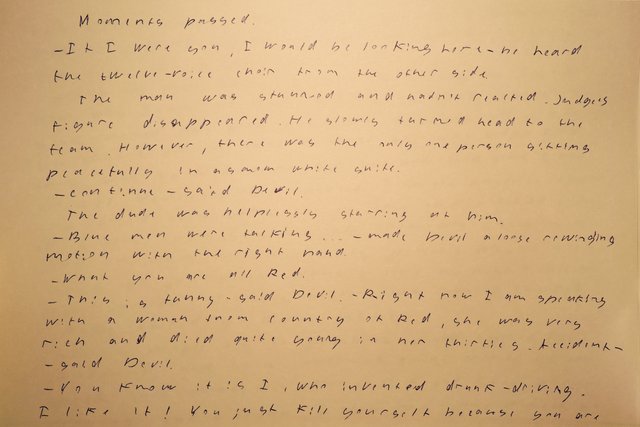 Moments passed.
- If I were you, I would be looking here - he heard
the twelve-voice choir from the other side.
The man was stunned and hadn't reacted. Judges
figure disappeared. He slowly turned head to the
team. However, there was the only one person sitting
peacefully in a snow white suite.
- continue - said Devil.
The dude was helplessly starring at him.
- Blue men were talking... - made Devil a loose rewinding
motion with the right hand.
- What you are all Red.
- This is funny - said Devil. - Right now I am speaking
with a woman from country of Red, she was very
rich and died quite young in her thirties. Accident -
- said Devil.
- You know it is I, who invented drunk-driving.
I like it! You just kill yourself because you are